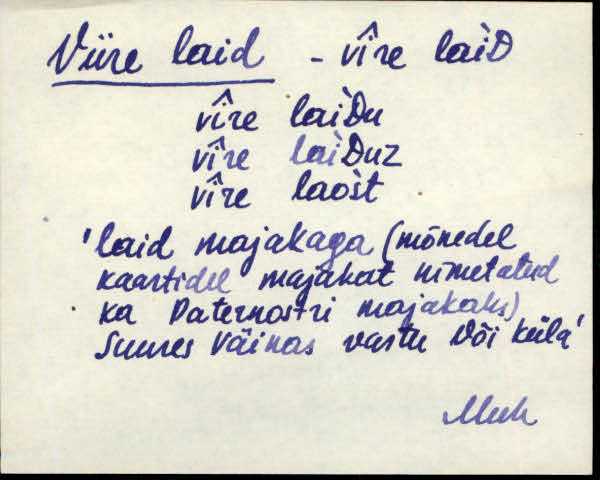 Viire laid - vîre laìD
vîre laìDu
vîre laìDuz
vîre laòšt
'laid majakaga (mõnedel
kaartidel majakat nimetatud
ka Paternostri majakaks)
Suures Väinas vastu Või küla'
Muh